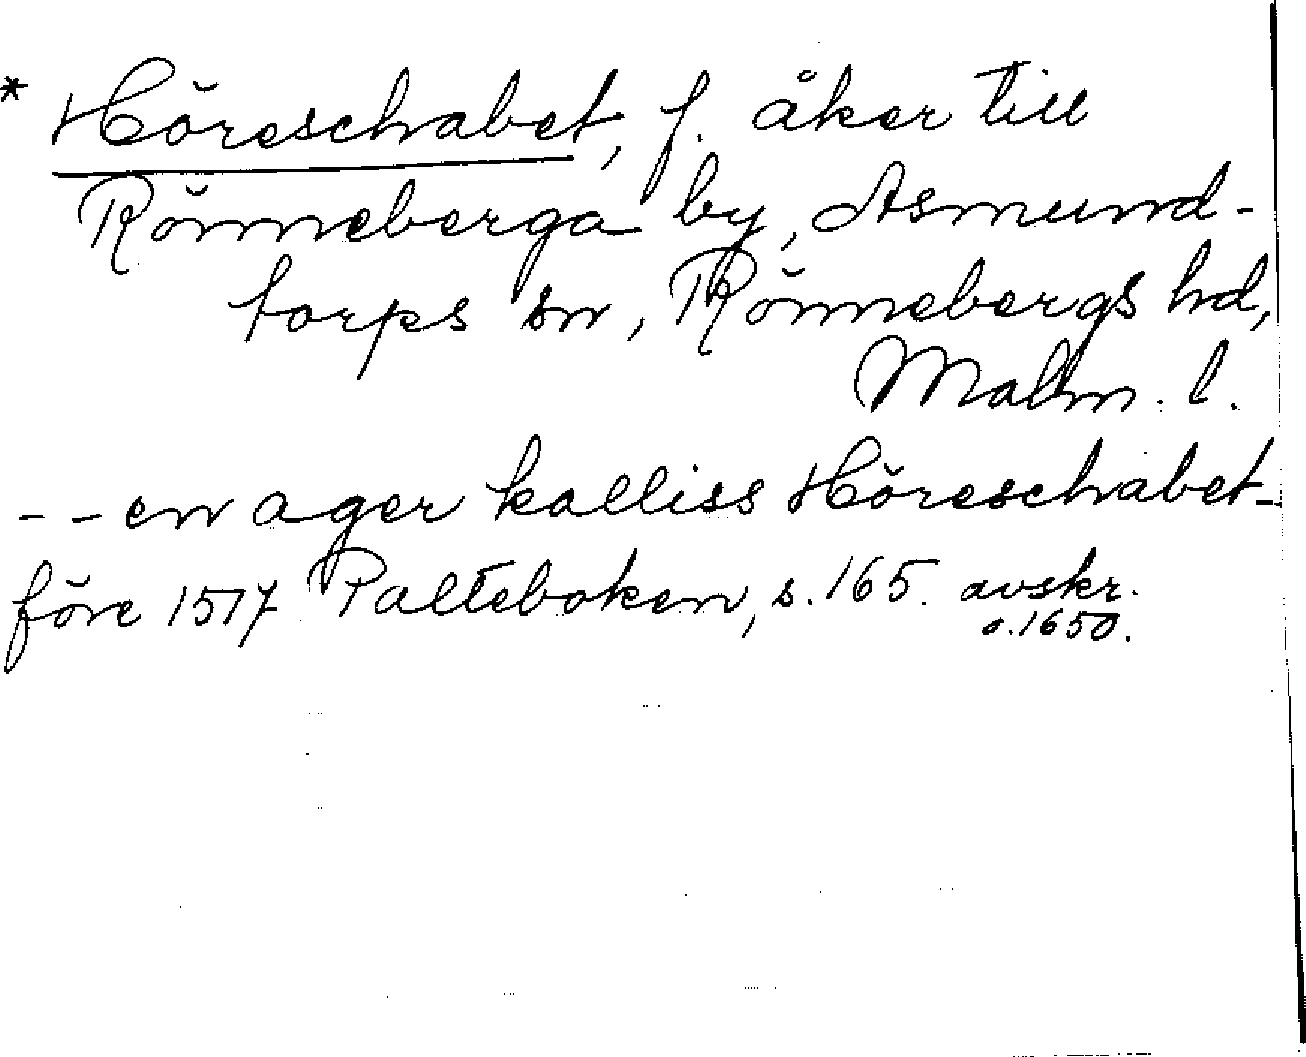 * Höreschabet, f. åker till
Rönneberga by, Asmund-
torps sn, Rönnebergs hd,
Malm. l.
- - en ager kalliss Höreschabet -
före 1517 Palteboken, s. 165. avskr.
o. 1650.